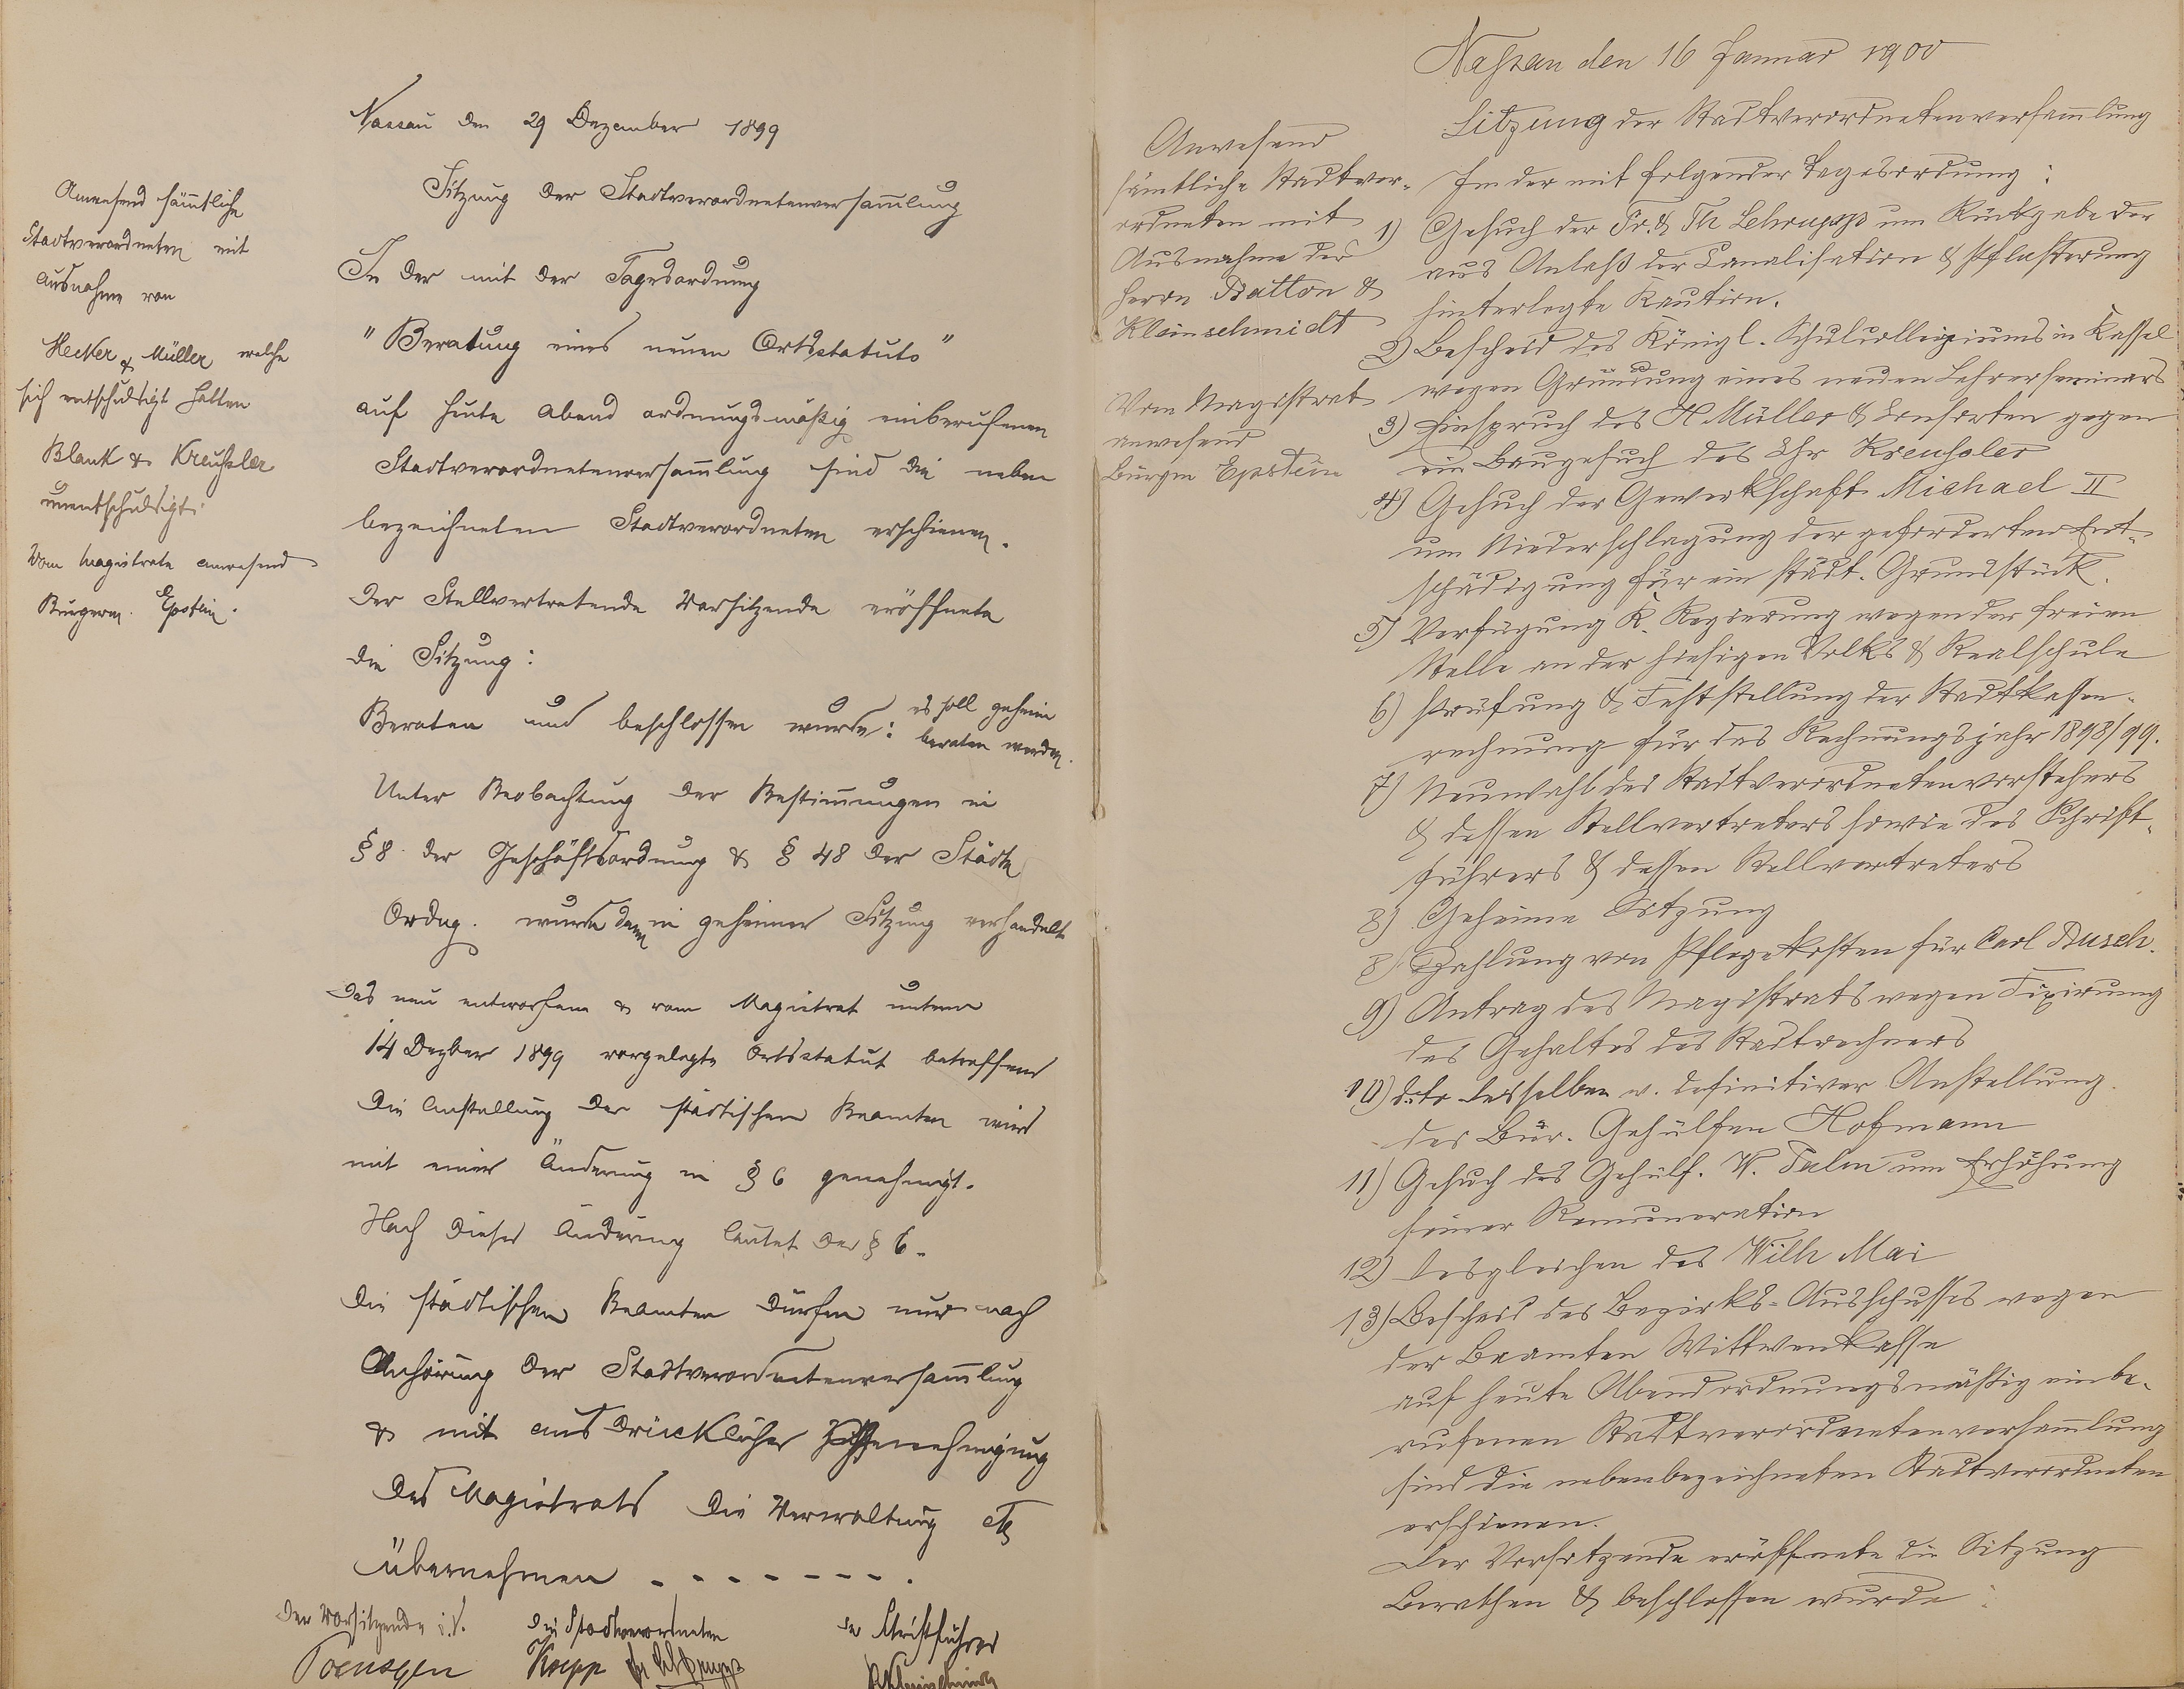 Nassau den 29 Dezember 1899
Sitzung der Stadtverordnetenversam̄lung
Anwesend säm̄tliche
Stadtverordneten mit
Ausnahme von
Hecker & Müller welche
sich entschuldigt hatten
Blank & Kreuhsler
unentschuldigt.
Vom Magistrate anwesend
Bürgerm. Epstein.
In der mit der Tagesordnung
"Beratung eines neuen Ortsstatuts"
auf heute Abend ordnungsmäßig einberufenen
Stadtverordnetenversam̄lung sind die neben
bezeichneten Stadtverordneten erschienen.
Der Stellvertretende Vorsitzende eröffnete
die Sitzung:
Beraten und beschlossen wurde: es soll geheim
beraten werden.
Unter Beobachtung der Bestim̄ungen in
§ 8 der Geschäftsordnung & § 48 der Städte
Ordng. wurde dann in geheimer Sitzung verhandelt
Das neu entworfene & vom Magistrat unterm
14 Dezber 1899 vorgelegte Ortsstatut betreffend
die Anstellung der städtischen Beamten wird
mit einer Änderung in § 6 genehmigt.
Nach dieser Änderung lautet der § 6.
Die städtischen Beamten dürfen nur nach
Anhörung der Stadtverordnetenversam̄lung
& mit ausdrücklicher Genehmigung
des Magistrats die Verwaltung etc
übernehmen - - - - - - - .
Der Vorsitzende i.V. Die Stadtverordneten Der Schriftführer
Toensgen Knipp
Nassau den 16 Januar 1900
Sitzung der Stadtverordnetenversam̄lung
Anwesend
sämtliche Stadtver-
ordneten mit
Ausnahme der
Herrn Batton &
Kleinschmidt
Vom Magistrat
anwesend
Bürgm Epstein
In der mit folgender Tagesordnung:
1) Gesuch der Fr. & Th Schrupp um Rückgabe der
aus Anlaß der Canalisation & Pflasterung
hinterlegte Kaution.
2) Bescheid des Königl. Schulcollegiums in Kassel
wegen Gründung eines neuen Lehrerseminars
3) Einspruch des H Müller & Consorten gegen
ein Baugesuch des Chr Kreuhsler
4) Gesuch der Gewerkschaft Michael II
um Niederschlagung der geforderten Ent-
schädigung für ein städt. Grundstück.
5) Verfügung K. Regierung wegen der freien
Stelle an der hiesigen Volks & Realschule
6) Prüfung & Feststellung der Stadtkassen-
rechnung für das Rechnungsjahr 1898/99.
7) Neuwahl des Stadtverordnetenvorstehers
& dessen Stellvertreters sowie des Schrift-
führers & dessen Stellvertreters
8) Geheime Sitzung
8) Zahlung von Pflegekosten für Carl Busch.
9) Antrag des Magistrats wegen Fixirung
des Gehaltes des Stadtrechners
10) dto desselben w. definitiver Anstellung
des Bür. Gehülfen Hofmann
11) Gesuch des Gehülf. W. Palm um Erhöhung
seiner Remuneration
12) Desgleichen des Wilh Mai
13) Bescheid des Bezirks-Ausschusses wegen
der Beamten Wittwenkasse
auf heute Abend ordnungsmäßig einbe-
rufenen Stadtverordnetenversam̄lung
sind die nebenbezeichneten Stadtverordneten
erschienen.
Der Vorsitzende eröffnete die Sitzung
Berathen & beschlossen wurde: